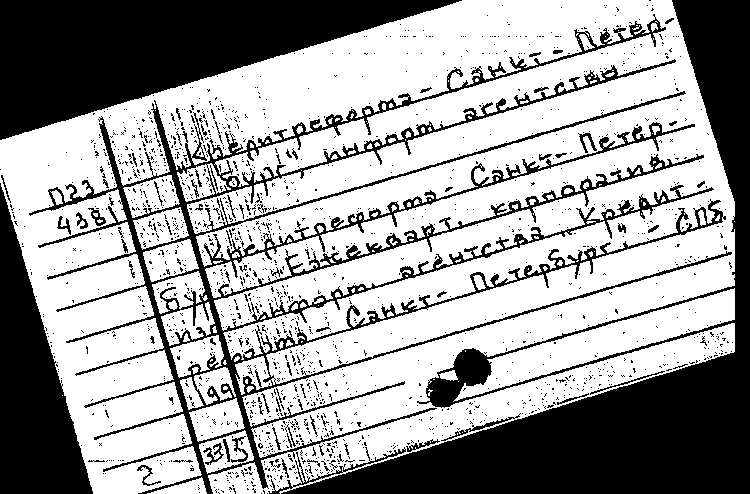 „Кредитреформа - Санкт - Петер-
бург", информ. агентство
П23
4381
Кредитреформа - Санкт - Петер-
бург. - Ежекварт. корпоратив.
изд. информ. агентства „Кредит-
реформа - Санкт - Петербург". - СПб,
1998 -
33/5
2